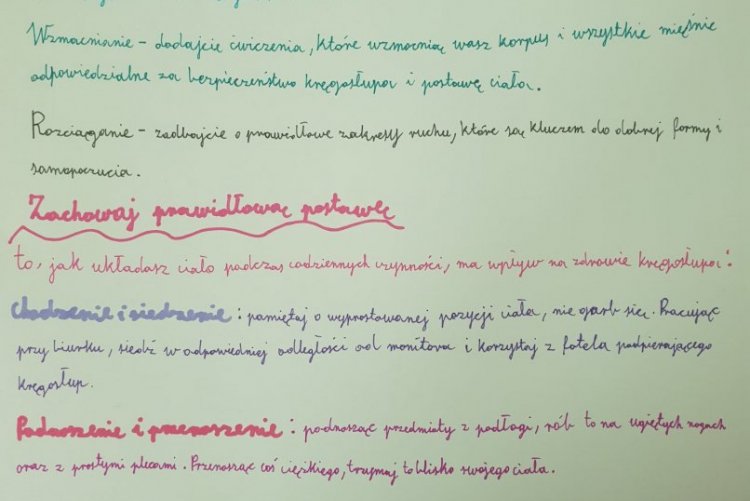 Wzmacnianie - dodajcie ćwiczenia, które wzmocnią wasz korpus i wszystkie mięśnie
odpowiedzialne za bezpieczeństwo kręgosłupa i postawę ciała.
Rozciąganie - zadbajcie o prawidłowe zakresy ruchu, które są kluczem do dobrej formy i
samopoczucia.
Zachowaj prawidłową postawę
to, jak układasz ciało podczas codziennych czynności, ma wpływ na zdrowie kręgosłupa:
Chodzenie i siedzenie: pamiętaj o wyprostowanej pozycji ciała, nie garb się. Pracując
przy biurku, siedź w odpowiedniej odległości od monitora i korzystaj z fotela podpierającego
kręgosłup.
Podnoszenie i przenoszenie: podnosząc przedmioty z podłogi, rób to na ugiętych nogach
oraz z prostymi plecami. Przenosząc coś ciężkiego, trzymaj to blisko swojego ciała.